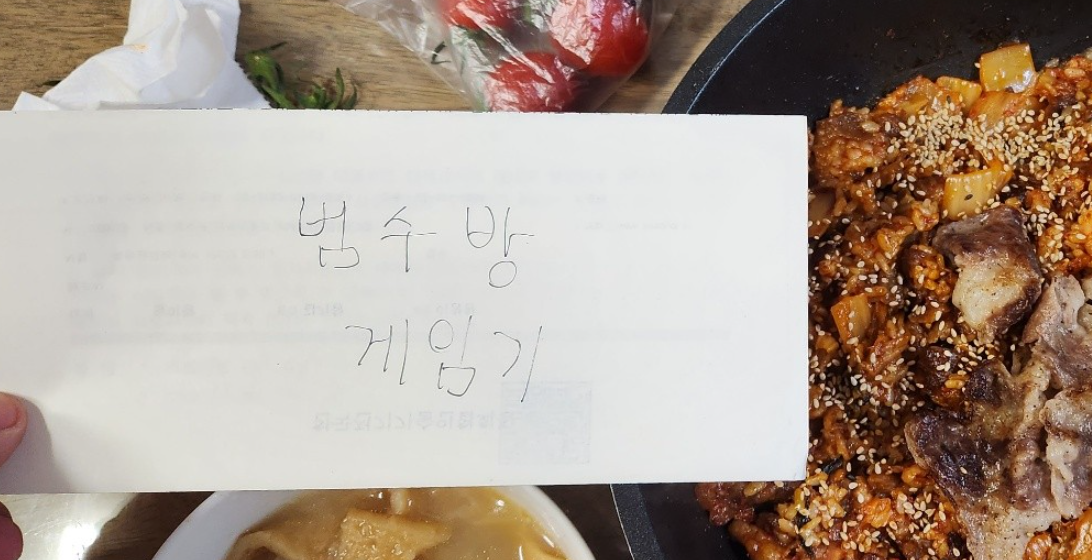 범수방
게임기